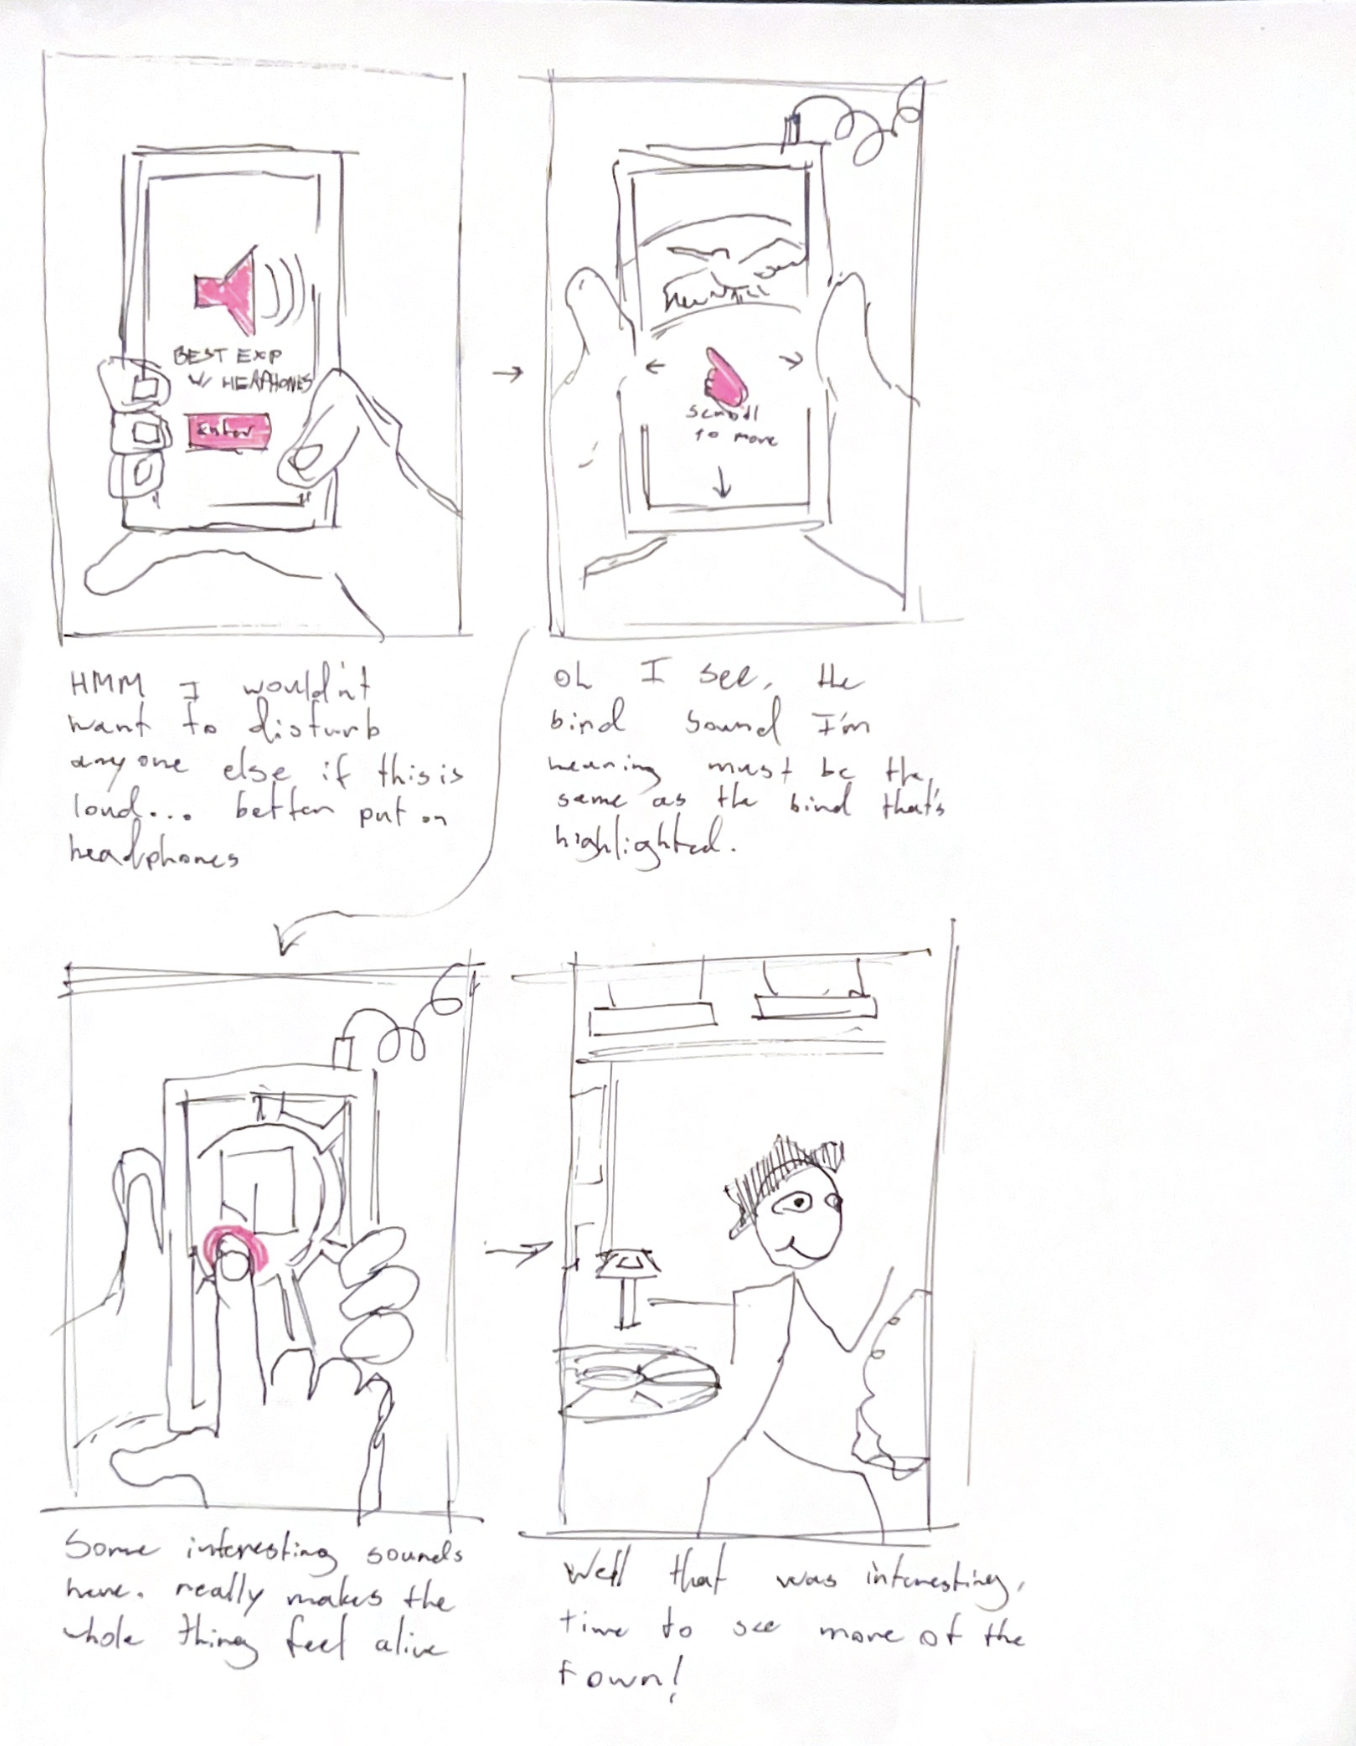 BEST EXP
W/ HEAPHONES
Enter
HMM I wouldn't
want to disturb
anyone else if this is
loud... better put on
headphones
scroll
to move
Oh I see, the
bird sound I'm
hearing must be the
same as the bird that's
highlighted.
Some interesting sounds
here. really makes the
whole thing feel alive
Well that was interesting,
time to see more of the
town!